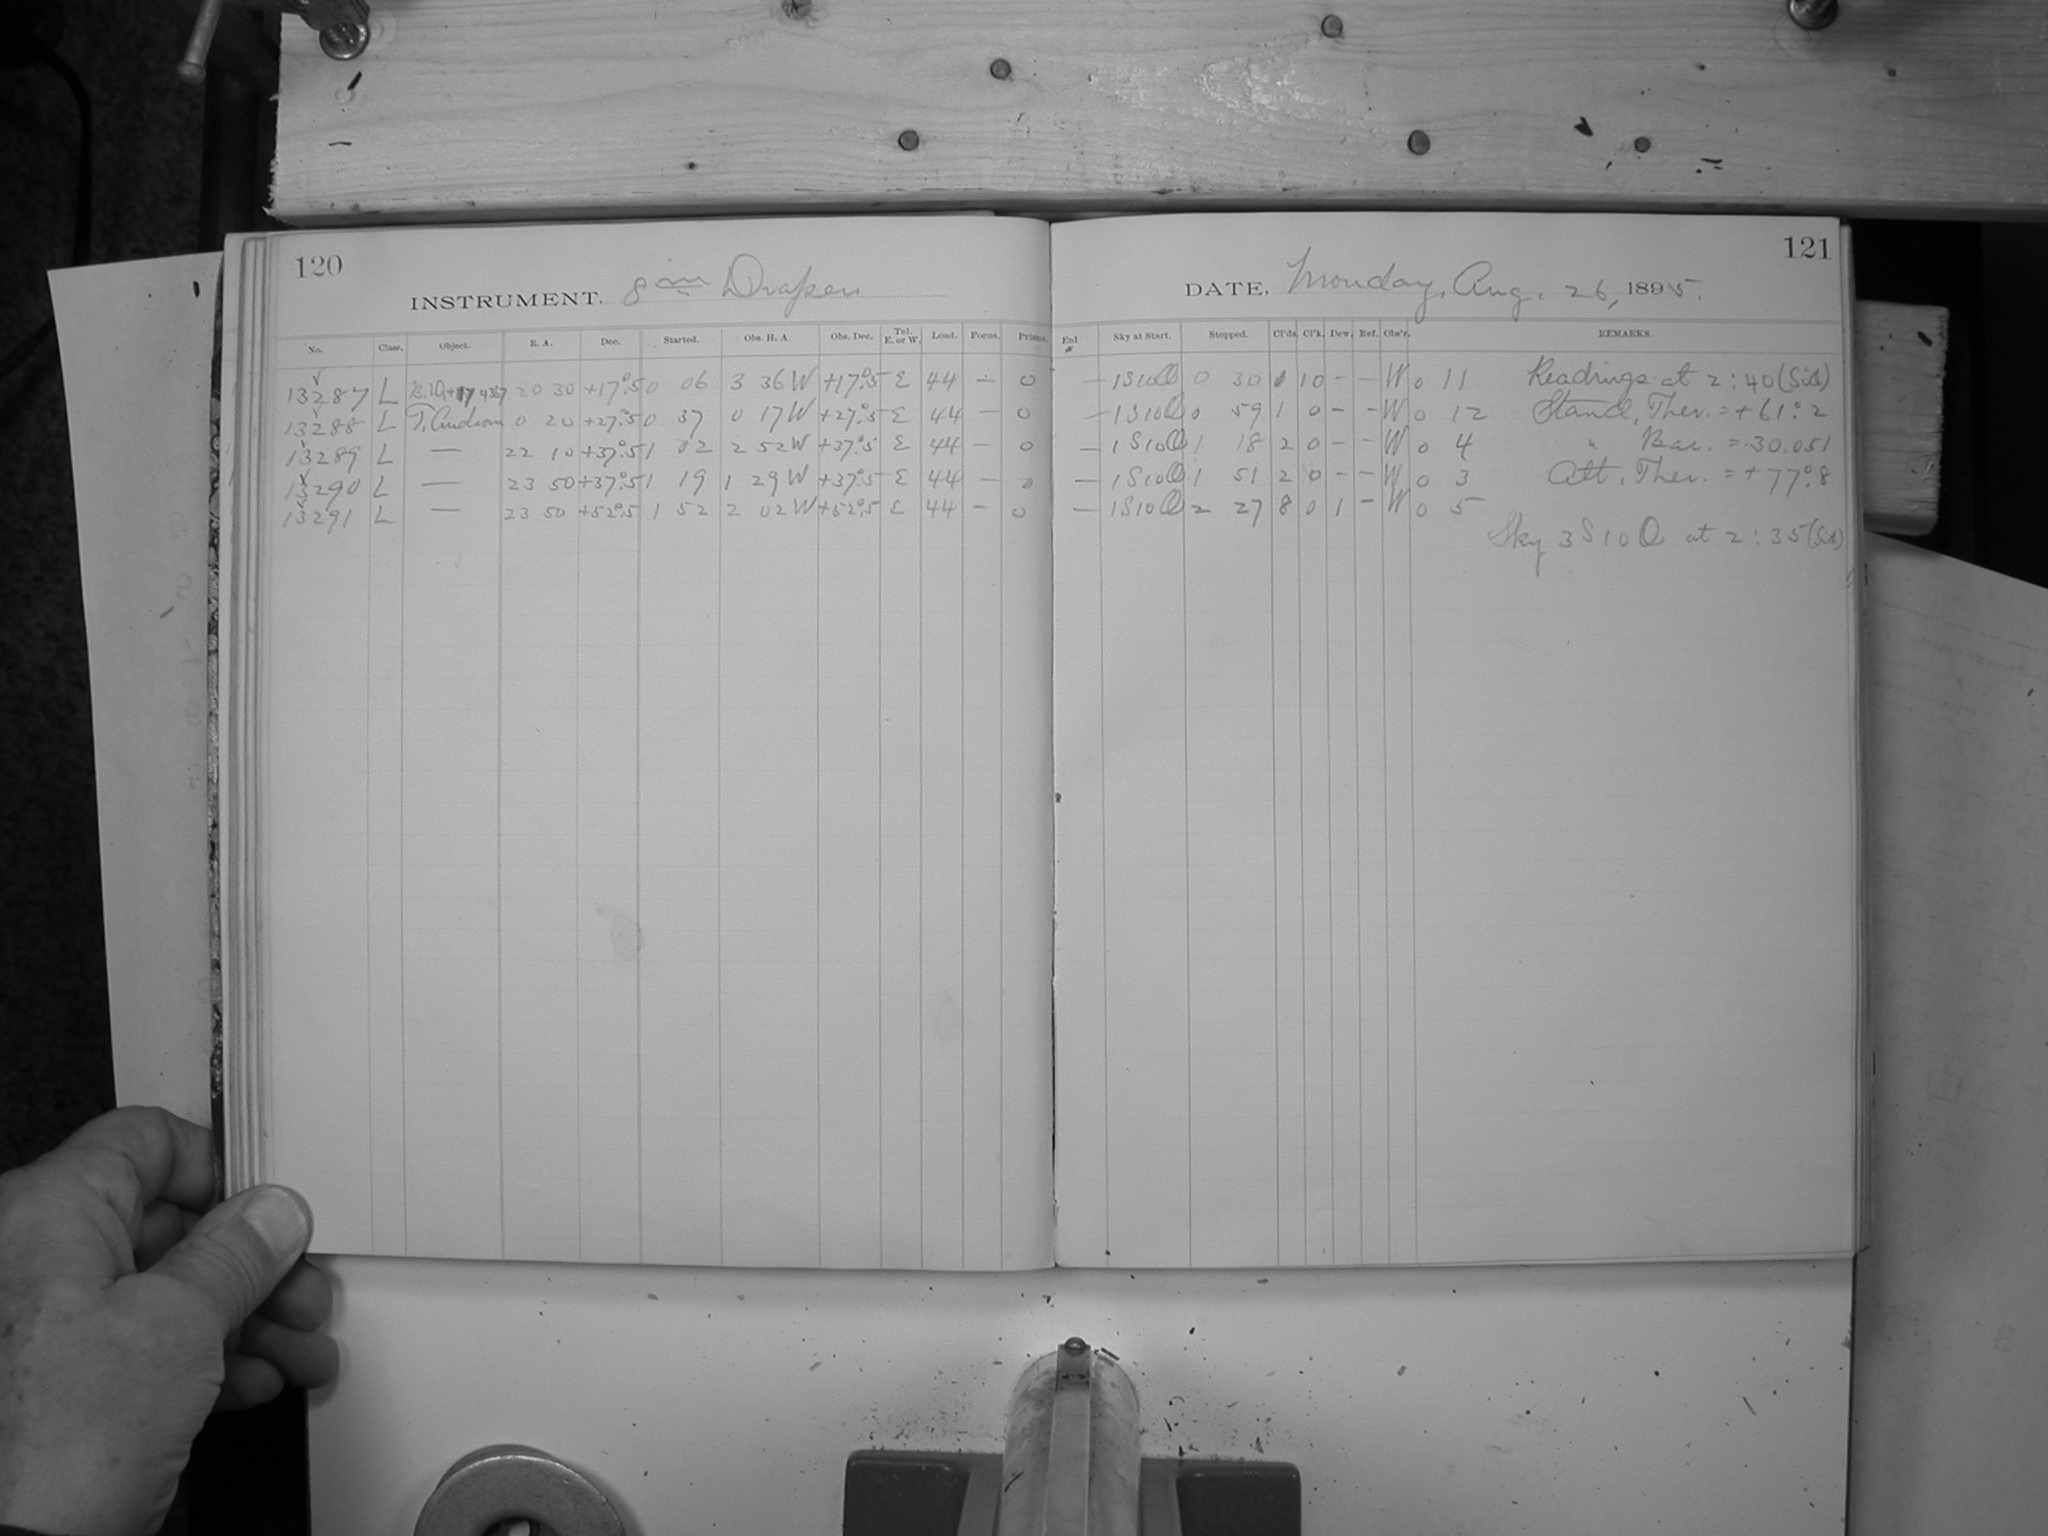 120
INSTRUMENT. 8 in Draper
No. Class. Object. R. A. Dec. Started. Obs. H. A. Obs. Dec. Tel. E. or W. Load. Focus. Prisms.
13287 L +17 4367 20 30 +17°.5 0 06 3 36 W +17°.5 E 44 — 0
13288 L T. Androm 0 20 +27°.5 0 37 0 17 W +27°.5 E 44 — 0
13289 L — 22 10 +37°.5 1 02 2 52 W +37°.5 E 44 — 0
13290 L — 23 50 +37°.5 1 19 1 29 W +37°.5 E 44 — 0
13291 L — 23 50 +52°.5 1 52 2 02 W +52°.5 E 44 — 0
121
DATE. Monday, Aug. 26, 1895.
Sky at Start. Stopped. Cl'ds. Cl'k. Dew. Ref. Obs'r. REMARKS.
— 1S10Q 0 30 1 10 – – W 0 11 Readings at 2:40 (Sid)
— 1S10Q 0 59 1 0 – – W 0 12 Stand. Ther. = +61°.2
— 1S10Q 1 18 2 0 – – W 0 4 " Bar. = 30.051
— 1S10Q 1 51 2 0 – – W 0 3 Att. Ther. = +77°.8
— 1S10Q 2 27 8 0 1 – W 0 5
Sky 3S10Q at 2:35 (Sid)